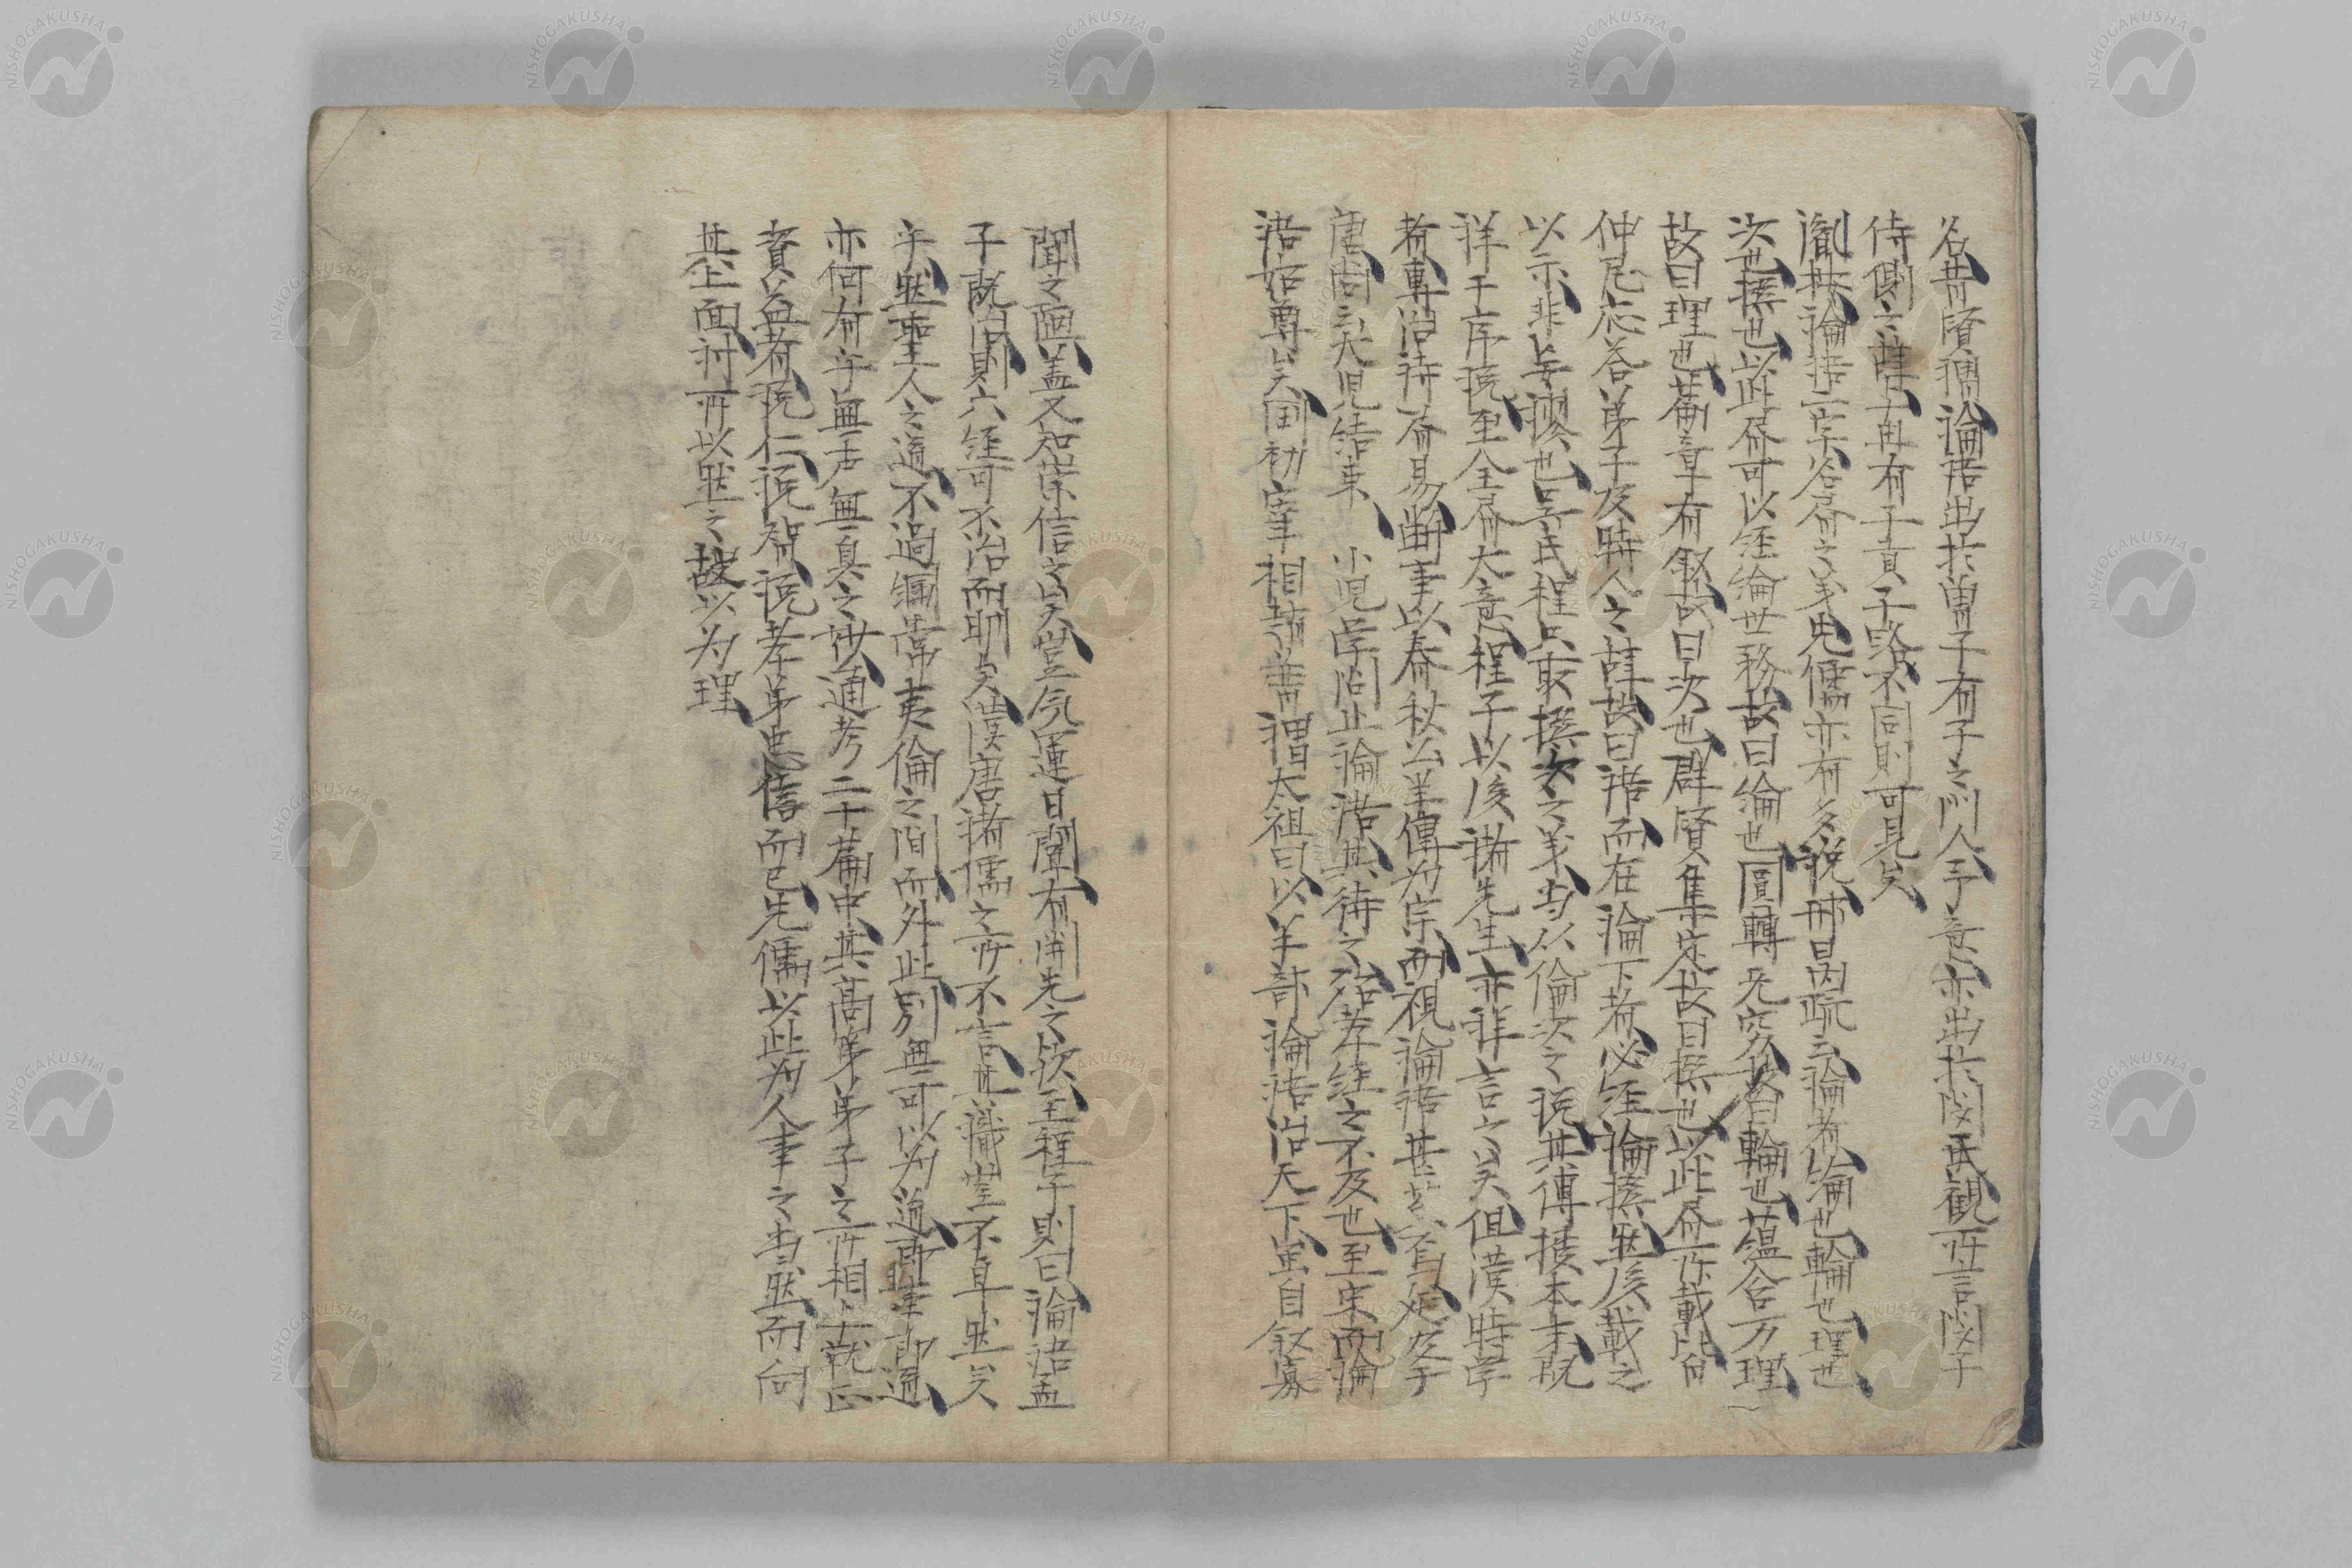 名昔賢獨論語出於曽子有子之門人予意亦出於閔氏觀所言閔子
侍側之辞与冉有子貢子路不同則可見矣
胤按論語二字名屑之義先儒亦有多説邢昺疏云論者綸也輪也理也
次也撰也以此屑可以経綸世務故曰綸也圓轉无窮故曰輪也蘊含万理
故曰理也篇章有叙故曰次也群賢集定故曰撰也以此屑所載皆
仲尼応答弟子及時人之辞故曰語而在論下者必経論撰然後載之
以示非妄謬也吴氏程只取撰次之義与以倫次之説其傳授本末既
詳于序説至全屑大意程子以後諸先生亦詳言之矣但漢時学
者専治詩屑易断事以春秋公羊傳為宗而視論語甚若焉延及于
唐尚云大児結束 小児学問止論語其待之殆孝経之不及也至宋而論
語始尊矣国初宰相趙普謂太祖曰以半部論語治天下雖自叙寡
聞之陋盖又知崇信之意矣豈気運日闢有開先之歟至程子則曰論語孟
子既治則六経可不治而明矣漢唐諸儒之所不言其識豈不卓然矣
乎然聖人之道不過綱常夷倫之間而外此別無可以为道即事即道
亦何有乎無声無臭之妙通考二十篇中其高第弟子之所相与就正
資益者説仁説智説孝弟忠信而已先儒以此为人事之当然而向
其上面討所以然之故以为理